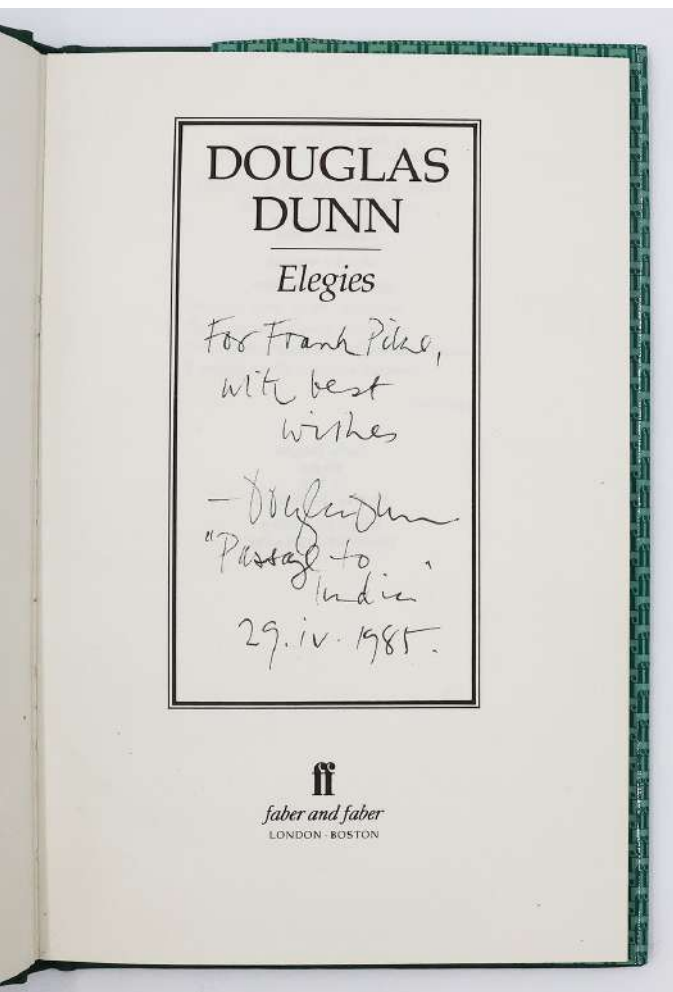 DOUGLAS
DUNN
Elegies
For Frank Pike,
with best
wishes
— Douglas Dunn
"Passage to
India"
29.iv.1985.
ff
faber and faber
LONDON · BOSTON